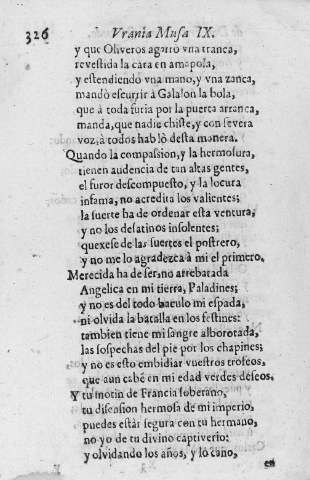 326 Vrania Musa IX.
y que Oliveros agarrò vna tranca,
revestida la cara en amapola,
y estendiendo vna mano, y vna zanca,
mandò escurrir à Galalon la bola,
que à toda furia por la puerta arranca,
manda, que nadie chiste, y con severa
voz, à todos hablò desta manera.
Quando la compassion, y la hermosura,
tienen audencia de tan altas gentes,
el furor descompuesto, y la locura
infama, no acredita los valientes;
la suerte ha de ordenar esta ventura,
y no los desatinos insolentes;
quexese de las suertes el postrero,
y no me lo agradezca à mi el primero.
Merecida ha de ser, no arrebatada
Angelica en mi tierra, Paladines;
y no es del todo baculo mi espada,
ni olvida la batalla en los festines:
tambien tiene mi sangre alborotada,
las sospechas del pie por los chapines;
y no es esto embidiar vuestros trofeos,
que aun cabe en mi edad verdes deseos.
Y tu motin de Francia soberano,
tu disension hermosa de mi imperio,
puedes estàr segura con tu hermano,
no yo de tu divino captiverio:
y olvidando los años, y lo cano,
en